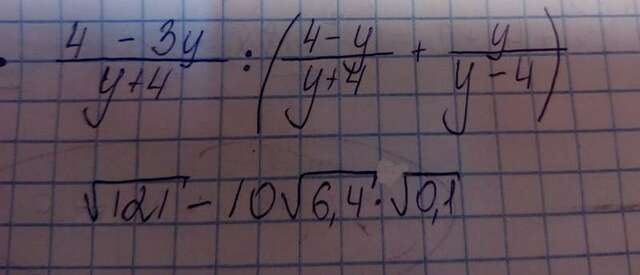 (4 - 3y)/(y+4) : ((4-y)/(y+4) + y/(y-4))
√121 - 10√6,4 · √0,1